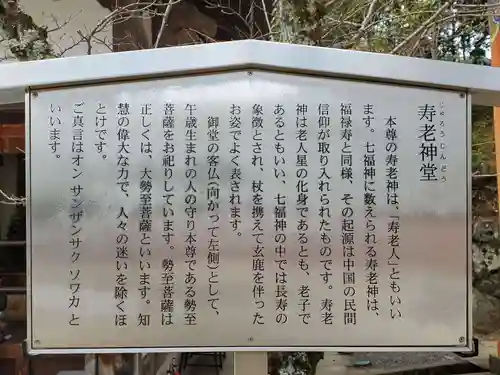 寿老神堂
じゅろうじんどう
本尊の寿老神は、「寿老人」ともいい
ます。七福神に数えられる寿老神は、
福禄寿と同様、その起源は中国の民間
信仰が取り入れられたものです。寿老
神は老人星の化身であるとも、老子で
あるともいい、七福神の中では長寿の
象徴とされ、杖を携えて玄鹿を伴った
お姿でよく表されます。
御堂の客仏(向かって左側)として、
午歳生まれの人の守り本尊である勢至
菩薩をお祀りしています。勢至菩薩は
正しくは、大勢至菩薩といいます。知
慧の偉大な力で、人々の迷いを除くほ
とけです。
ご真言はオン サンザンサク ソワカ と
いいます。